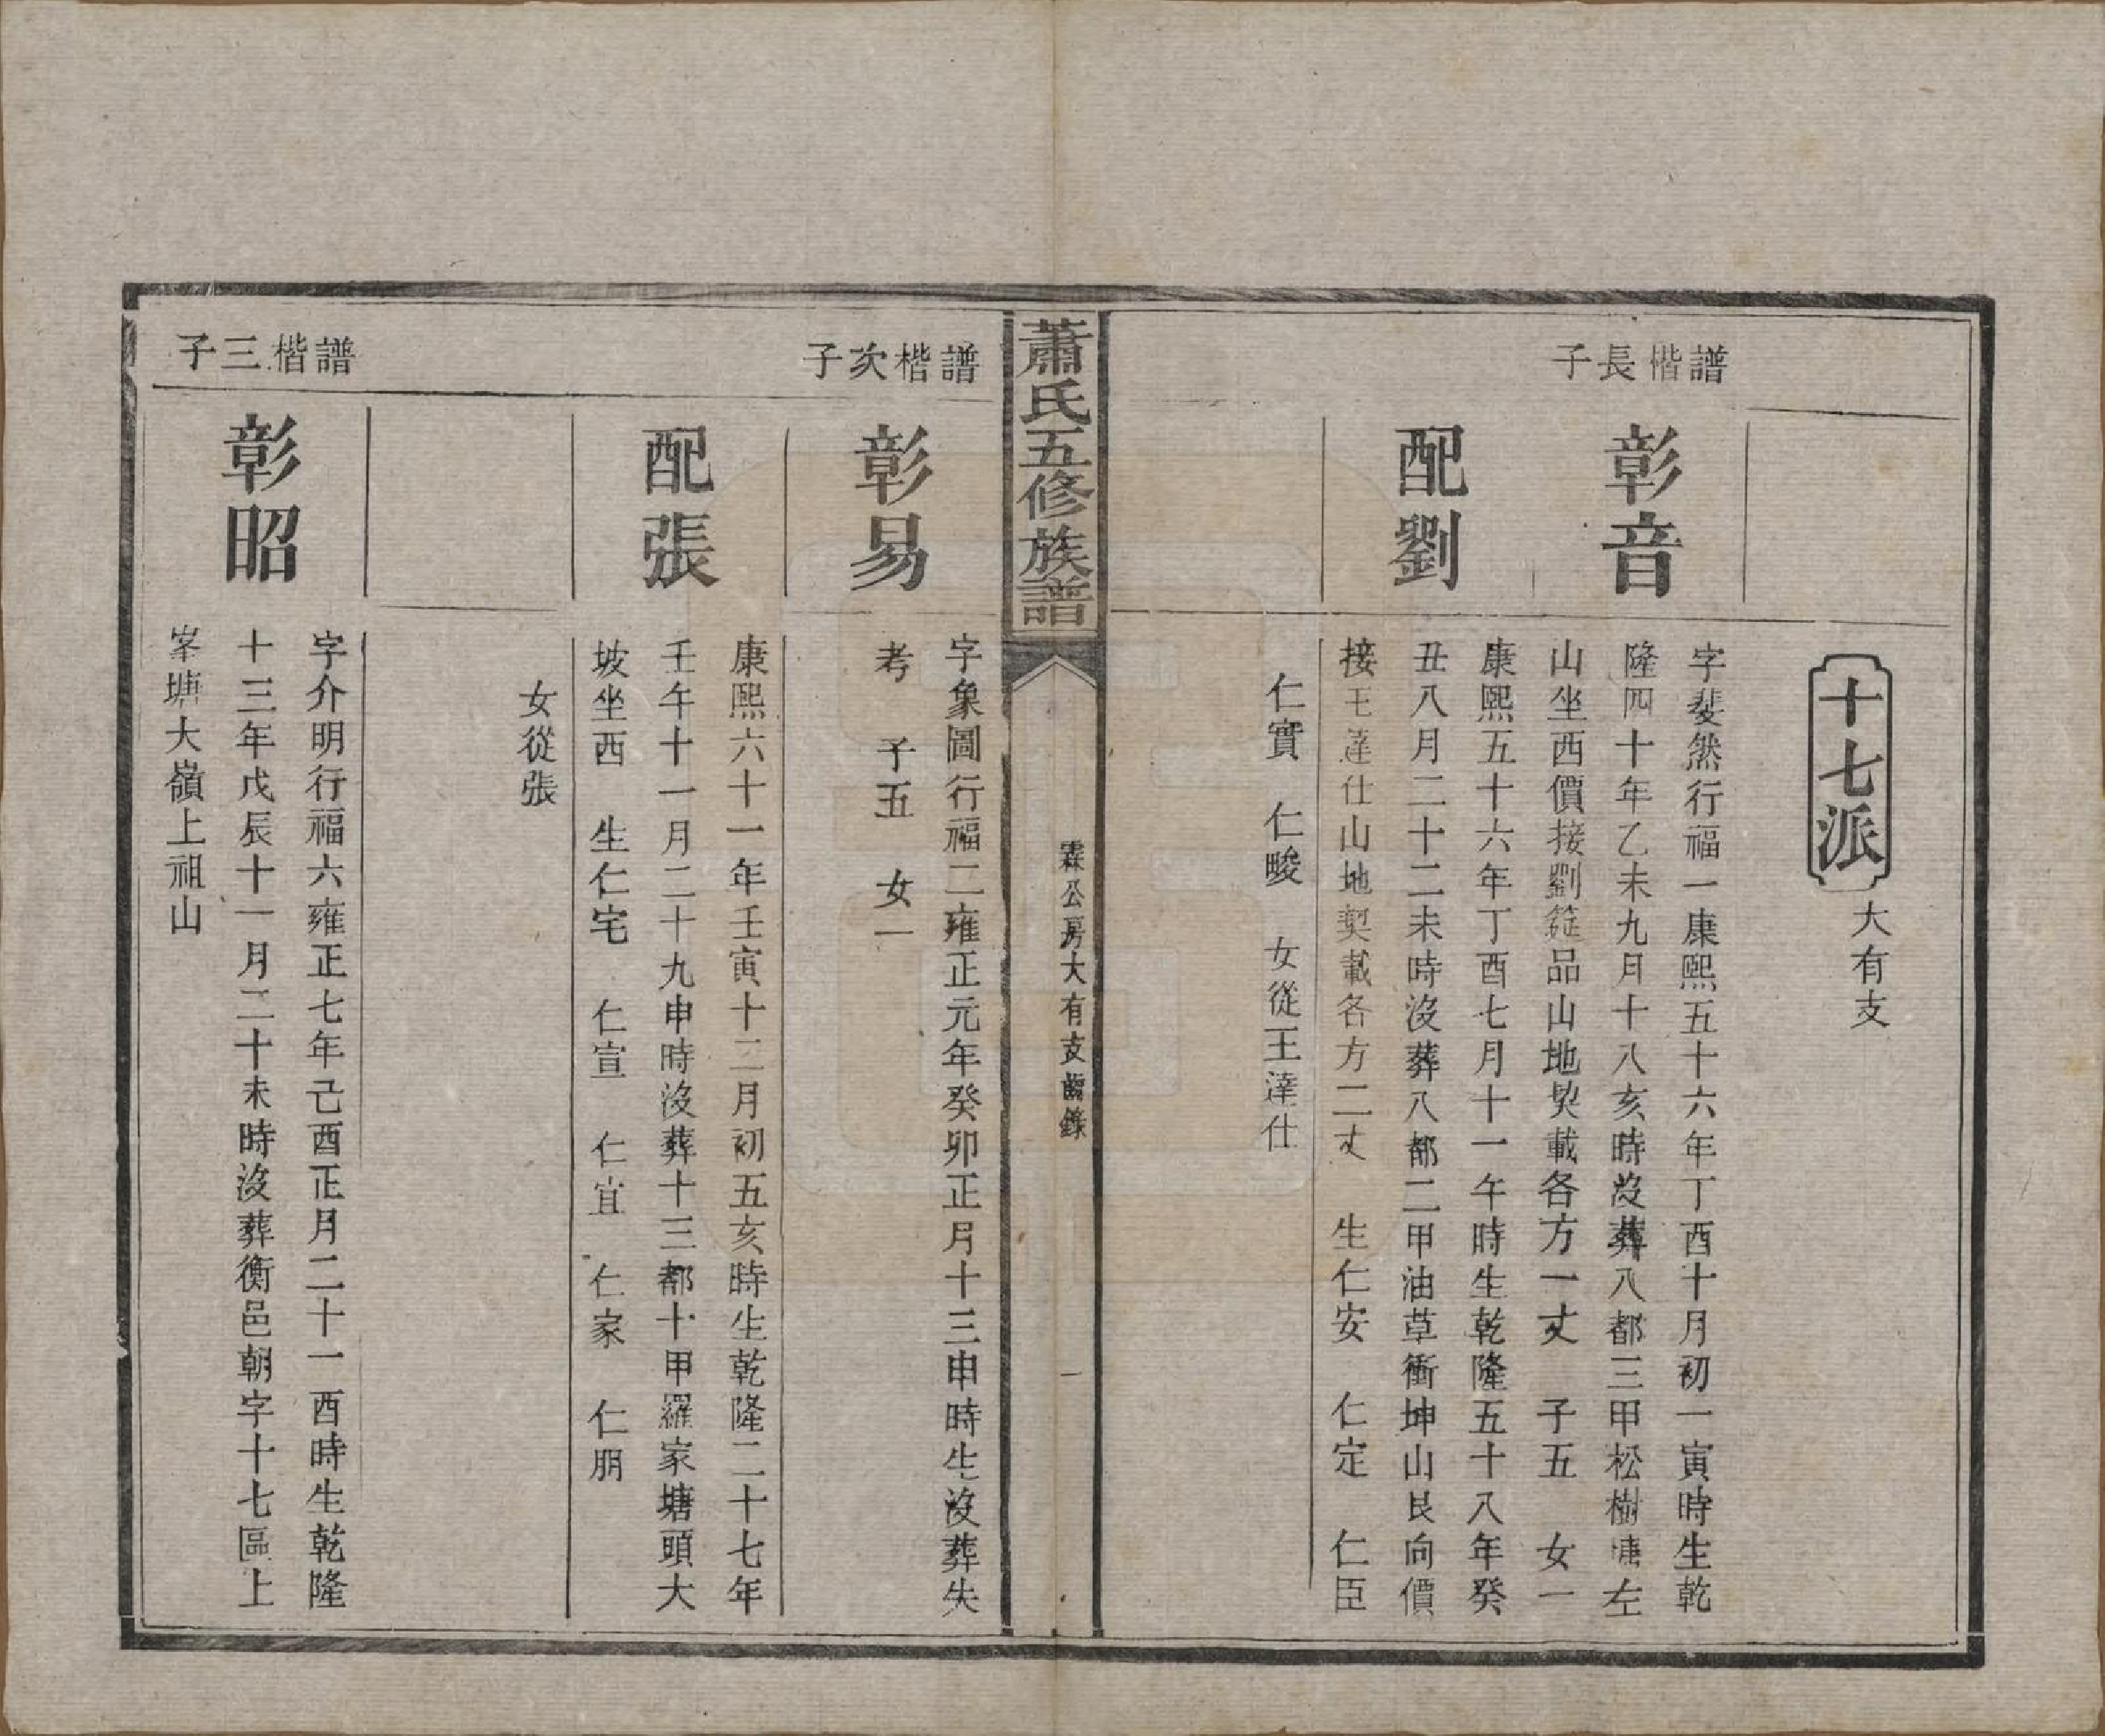 十七派 大有支
譜楷長子
彰音
字斐然行福一康熙五十六年丁酉十月初一寅時生乾
隆四十年乙未九月十八亥時沒葬八都三甲松樹塘左
山坐西價接劉筵品山地契載各方一丈 子五 女一
配劉
康熙五十六年丁酉七月十一午時生乾隆五十八年癸
丑八月二十二未時沒葬八都二甲油草衝坤山艮向價
接王達仕山地契載各方二丈 生仁安 仁定 仁臣
仁實 仁畯 女從王達仕
蕭氏五修族譜
霖公房大有支齒錄
一
譜楷次子
彰易
字象圖行福二雍正元年癸卯正月十三申時生沒葬失
考 子五 女一
配張
康熙六十一年壬寅十二月初五亥時生乾隆二十七年
壬午十一月二十九申時沒葬十三都十甲羅家塘頭大
坡坐西 生仁宅 仁宣 仁宜 仁家 仁朋
女從張
譜楷三子
彰昭
字介明行福六雍正七年己酉正月二十一酉時生乾隆
十三年戊辰十一月二十未時沒葬衡邑朝字十七區上
峯塘大嶺上祖山